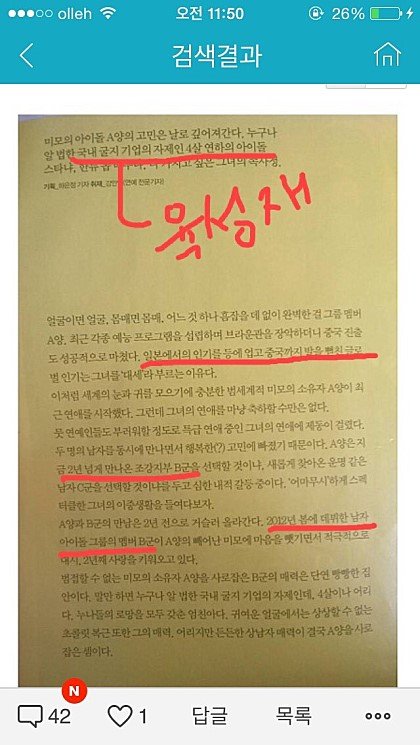 olleh 오전 11:50 26%
검색결과
미모의 아이돌 A양의 고민은 날로 깊어져간다. 누구나
알 법한 국내 굴지 기업의 자제인 4살 연하의 아이돌
스타냐,
기획_하은정 기자 취재_강만 (연예 전문기자)
육성재
얼굴이면 얼굴, 몸매면 몸매. 어느 것 하나 흠잡을 데 없이 완벽한 걸 그룹 멤버
A양. 최근 각종 예능 프로그램을 섭렵하며 브라운관을 장악하더니 중국 진출
도 성공적으로 마쳤다. 일본에서의 인기를 등에 업고 중국까지 발을 뻗친 글로
벌 인기는 그녀를 '대세'라 부르는 이유다.
이처럼 세계의 눈과 귀를 모으기에 충분한 범세계적 미모의 소유자 A양이 최
근 연애를 시작했다. 그런데 그녀의 연애를 마냥 축하할 수만은 없다.
뭇 연예인들도 부러워할 정도로 특급 연애 중인 그녀의 연애에 제동이 걸렸다.
두 명의 남자를 동시에 만나면서 행복한(?) 고민에 빠졌기 때문이다. A양은 지
금 2년 넘게 만나온 조강지부 B군을 선택할 것이냐, 새롭게 찾아온 운명 같은
남자 C군을 선택할 것이냐를 두고 심한 내적 갈등 중이다. '어마무시'하게 스펙
터클한 그녀의 이중생활을 들여다보자.
A양과 B군의 만남은 2년 전으로 거슬러 올라간다. 2012년 봄에 데뷔한 남자
아이돌 그룹의 멤버 B군이 A양의 빼어난 미모에 마음을 뺏기면서 적극적으로
대시, 2년째 사랑을 키워오고 있다.
범접할 수 없는 미모의 소유자 A양을 사로잡은 B군의 매력은 단연 빵빵한 집
안이다. 말만 하면 누구나 알 법한 국내 굴지 기업의 자제인데, 4살이나 어리
다. 누나들의 로망을 모두 갖춘 엄친아다. 귀여운 얼굴에서는 상상할 수 없는
초콜릿 복근 또한 그의 매력. 어리지만 든든한 상남자 매력이 결국 A양을 사로
잡은 셈이다.
N
42 1 답글 목록